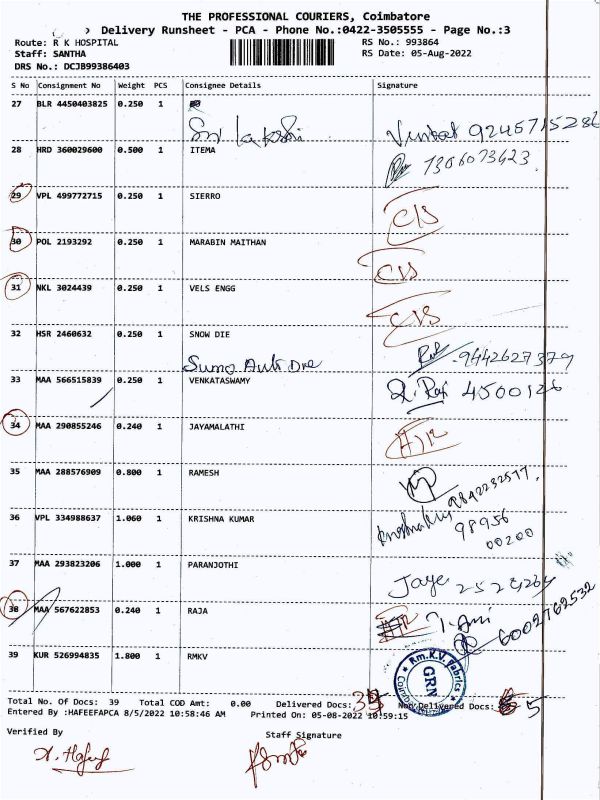 THE PROFESSIONAL COURIERS, Coimbatore
Delivery Runsheet - PCA - Phone No.:0422-3505555 - Page No.:3
Route: R K HOSPITAL RS No.: 993864
Staff: SANTHA RS Date: 05-Aug-2022
DRS No.: DCJB99386403
S No Consignment No Weight PCS Consignee Details Signature
27 BLR 4450403825 0.250 1
Sri Lakshmi Venkat 9245715286
28 HRD 360029600 0.500 1 ITEMA
7306073423
29 VPL 499772715 0.250 1 SIERRO
C/S
30 POL 2193292 0.250 1 MARABIN MAITHAN
C/S
31 NKL 3024439 0.250 1 VELS ENGG
C/S
32 HSR 2460632 0.250 1 SNOW DIE
9442627379
Sumo Auto Die
33 MAA 566515839 0.250 1 VENKATASWAMY
4500126
34 MAA 290855246 0.240 1 JAYAMALATHI
35 MAA 288576909 0.800 1 RAMESH
9842232577
36 VPL 334988637 1.060 1 KRISHNA KUMAR
98956
00200
37 MAA 293823206 1.000 1 PARANJOTHI
Jaye
38 MAA 567622853 0.240 1 RAJA
6002762532
39 KUR 526994835 1.800 1 RMKV
Rm.K.V. Fabrics
GRN
Total No. Of Docs: 39 Total COD Amt: 0.00 Delivered Docs: 34 Non Delivered Docs: 5
Entered By :HAFEEFAPCA 8/5/2022 10:58:46 AM Printed On: 05-08-2022 10:59:15
Verified By Staff Signature